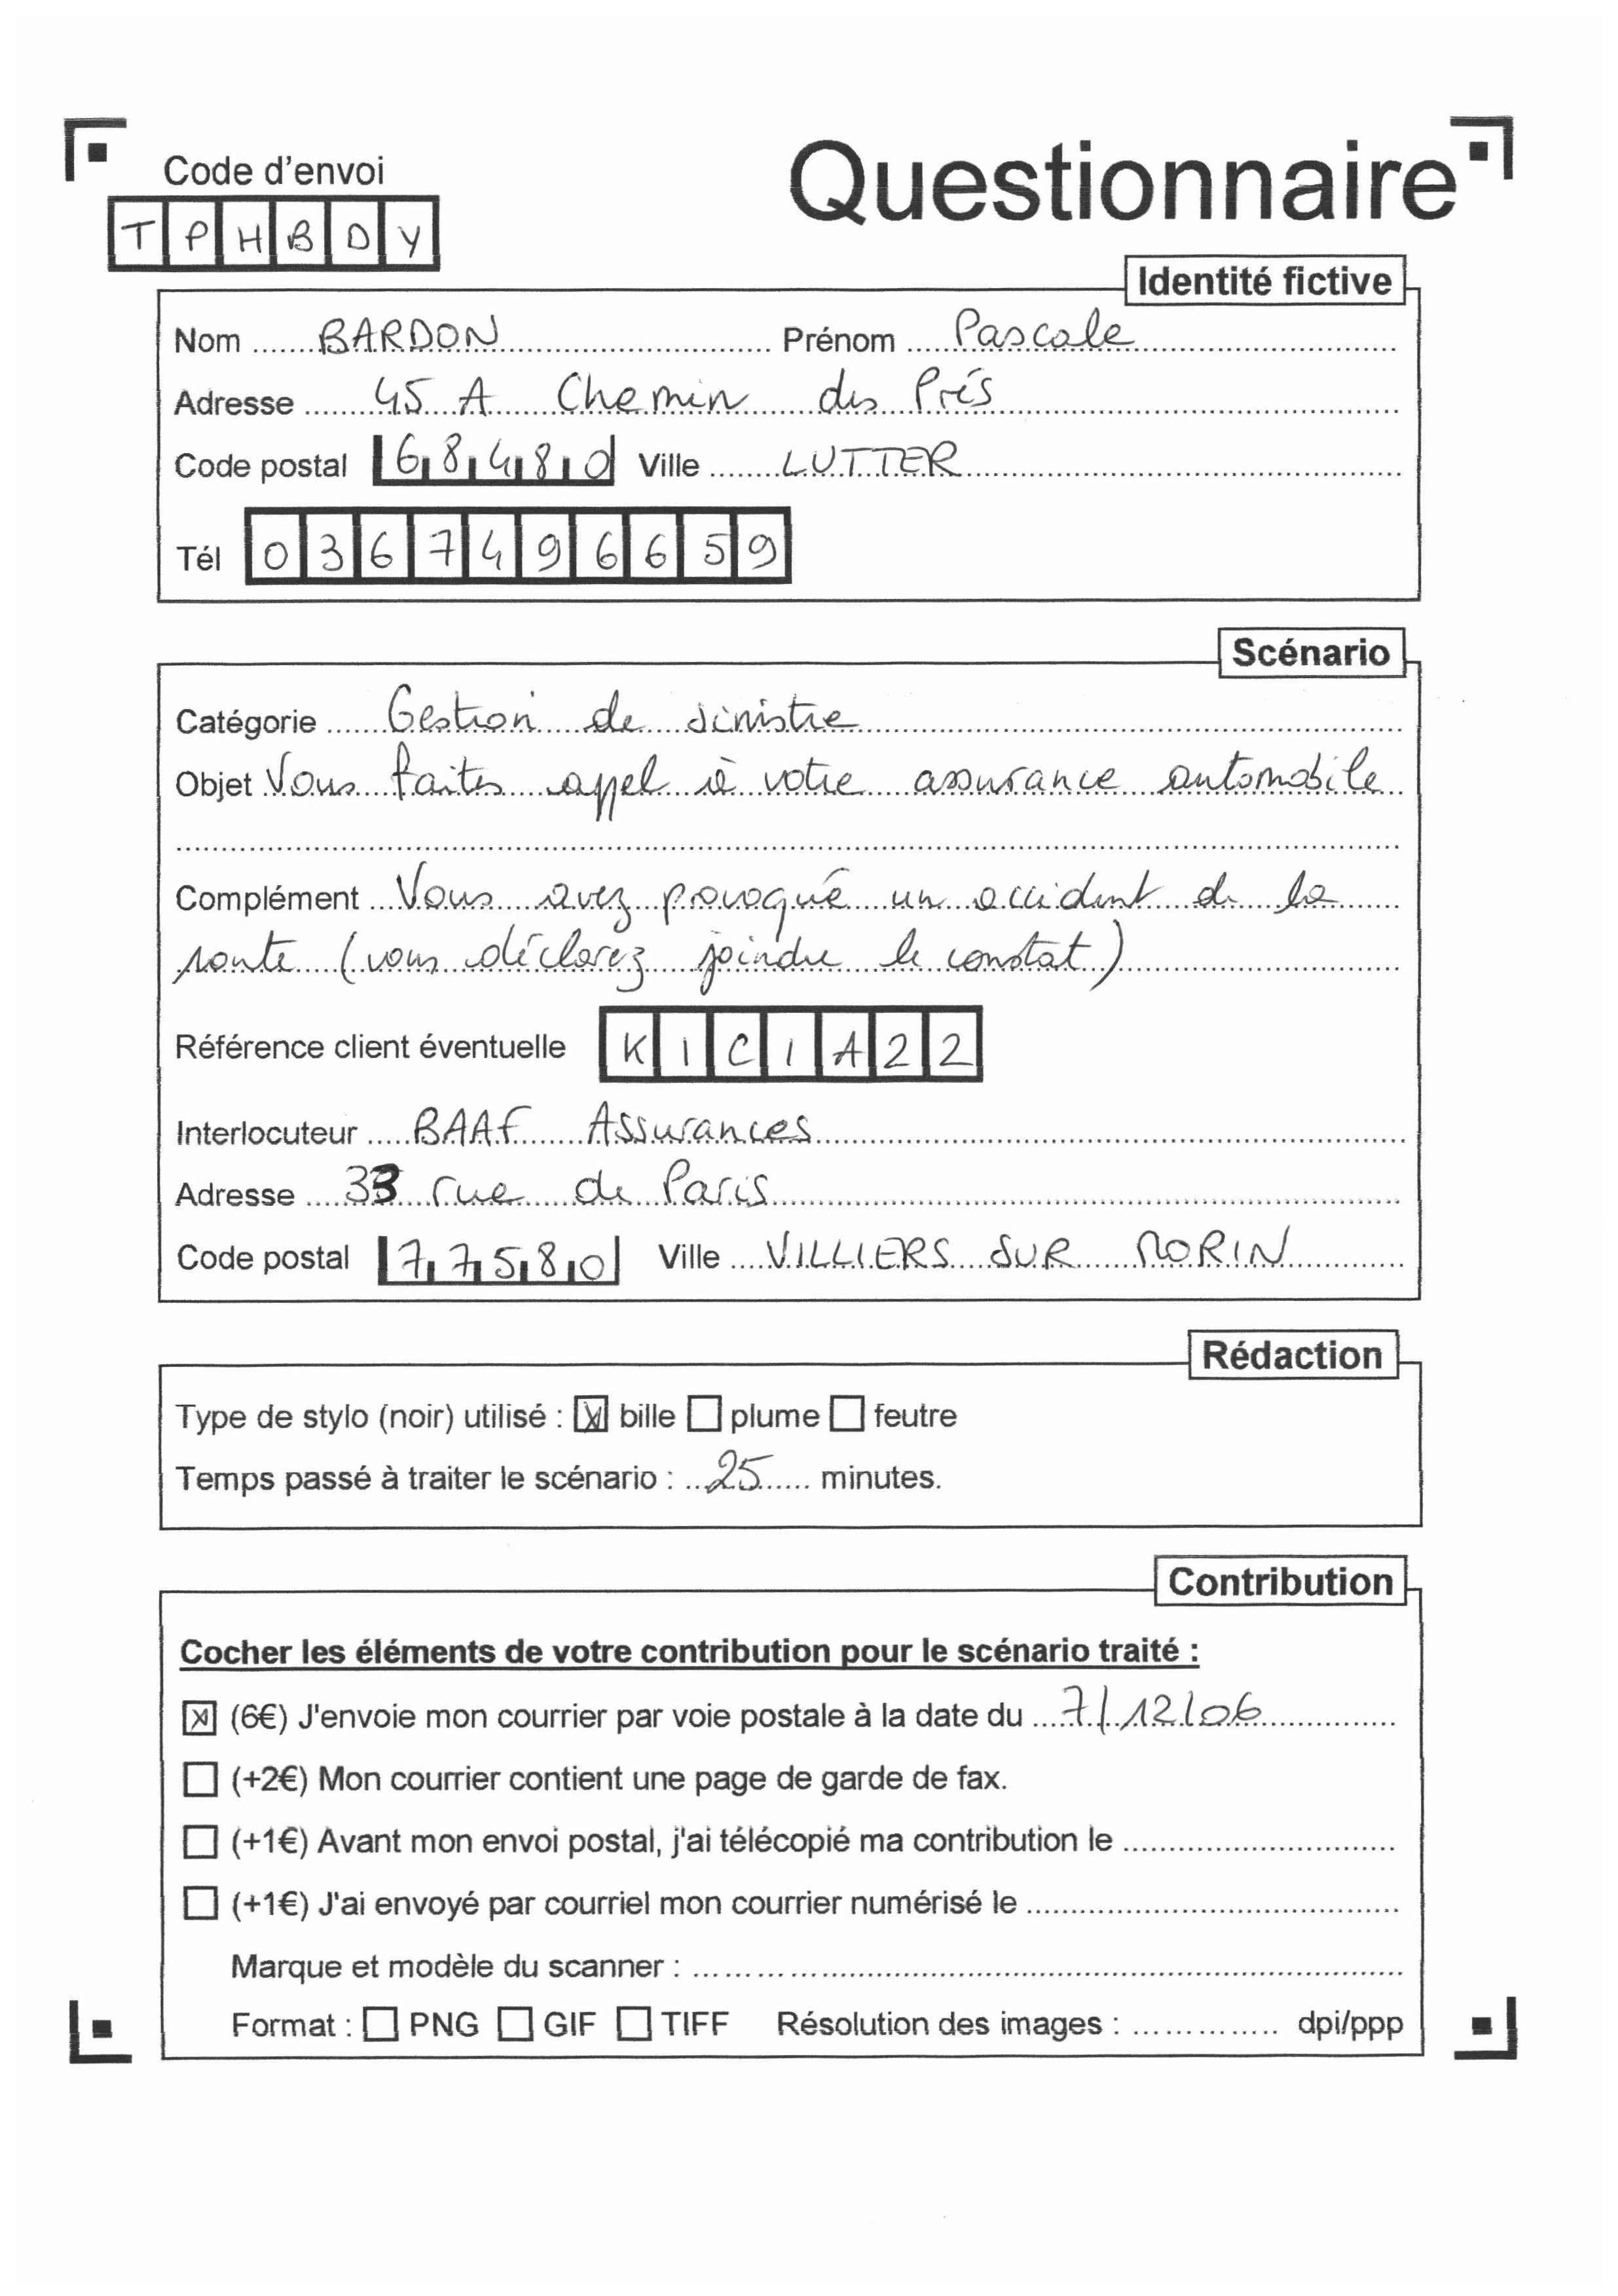 Code d'envoi
Questionnaire
T P H B D Y
Identité fictive
Nom ....... BARDON ....... Prénom ....... Pascale .......
Adresse ....... 45 A Chemin des Prés .......
Code postal 68480 Ville ....... LUTTER .......
Tél 0 3 6 7 4 9 6 6 5 9
Scénario
Catégorie ....... Gestion de sinistre .......
Objet Vous faites appel à votre assurance automobile
Complément ... Vous avez provoqué un accident de la
route (vous déclarez joindre le constat) .......
Référence client éventuelle K I C I A 2 2
Interlocuteur ..... BAAF Assurances .......
Adresse .... 33 rue de Paris .......
Code postal 77580 Ville .... VILLIERS SUR MORIN .......
Rédaction
Type de stylo (noir) utilisé : ☒ bille ☐ plume ☐ feutre
Temps passé à traiter le scénario : .. 25 ...... minutes.
Contribution
Cocher les éléments de votre contribution pour le scénario traité :
☒ (6€) J'envoie mon courrier par voie postale à la date du .... 7/12/06 .......
☐ (+2€) Mon courrier contient une page de garde de fax.
☐ (+1€) Avant mon envoi postal, j'ai télécopié ma contribution le .......
☐ (+1€) J'ai envoyé par courriel mon courrier numérisé le .......
Marque et modèle du scanner : .......
Format : ☐ PNG ☐ GIF ☐ TIFF Résolution des images : ....... dpi/ppp